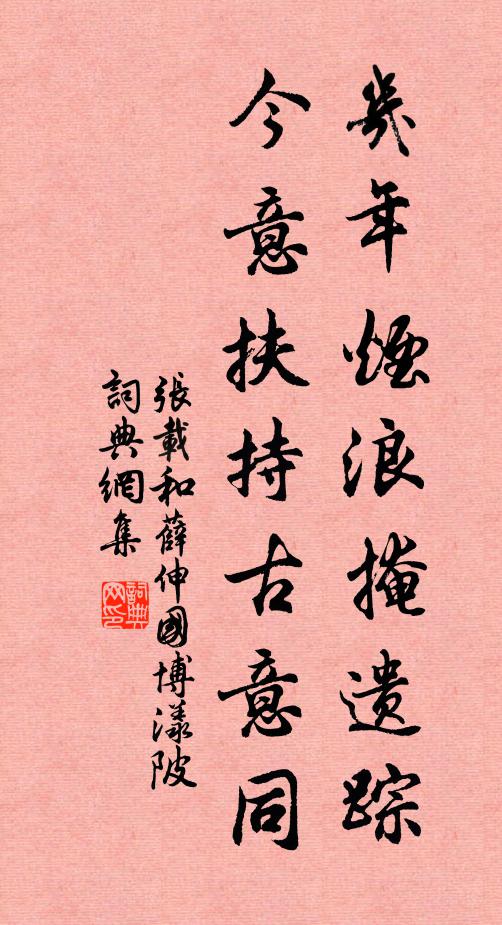 幾年煙浪掩遺踪
今意扶持古意同
張載和薛伸國博漾陂
詞典網集
詞典网印